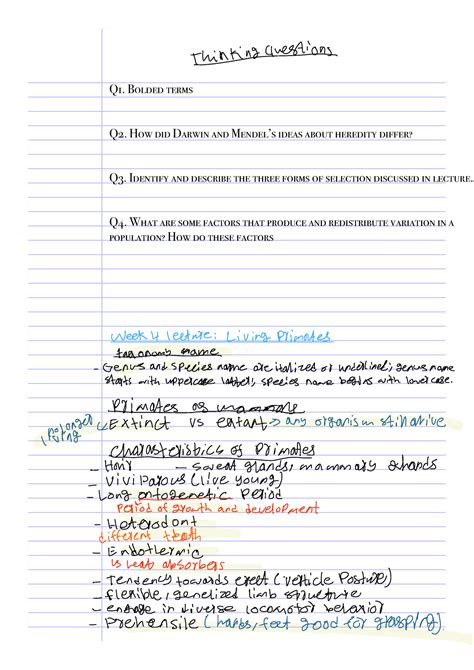 Thinking Questions
Q1. Bolded terms
Q2. How did Darwin and Mendel's ideas about heredity differ?
Q3. Identify and describe the three forms of selection discussed in lecture.
Q4. What are some factors that produce and redistribute variation in a
population? How do these factors
Week 4 lecture: Living Primates
taxonomic name
- Genus and species name are italized or underlined; genus name
starts with uppercase letter; species name begins with lowercase.
Primates as mammals
no longer living Extinct vs extant → any organism still alive
Characteristics of Primates
- Hair - sweat glands, mammary glands
- Viviparous (live young)
- Long ontogenetic Period
Period of growth and development
- Heterodont
different teeth
- Endothermic
- Tendency towards erect (verticle Posture)
- flexible, genelized limb structure
- engage in diverse locomotor behavior
- Prehensile (hands, feet good for grasping).